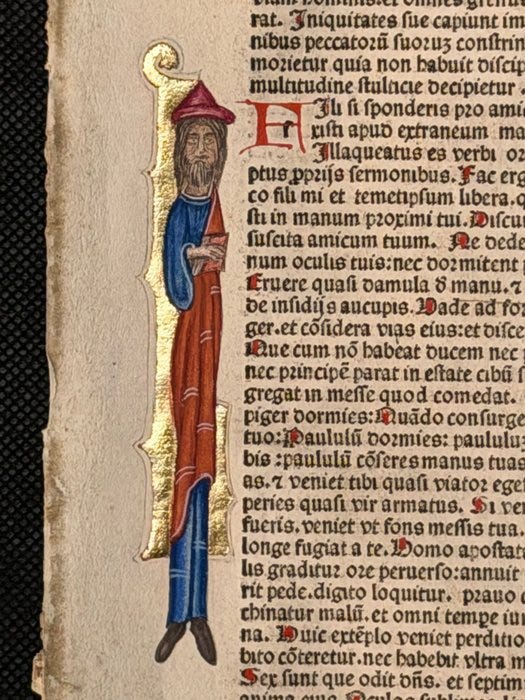 rat. Iniquitates sue capiunt im
nibus peccatorū suoruꝫ constrin
morietur quia non habuit discip
multitudine stulticie decipietur.
Fili si sponderis pro ami
xisti apud extraneum ma
Illaqueatus es verbi or
ptus ꝓprijs sermonibus. Fac erg
co fili mi et temetipsum libera.q
sti in manum proximi tui. Discu
suscita amicum tuum. Ne dede
num oculis tuis:nec dormitent
Eruere quasi damula ð manu.⁊
de insidijs aucupis. Vade ad for
ger.et cōsidera vias eius:et disce
Que cum nō habeat ducem nec
nec principē parat in estate cibū s
gregat in messe quod comedat.
piger dormies:Quādo consurge
tuo:Paululū dormies: paululu
bis :paululū cōseres manus tuas
as.⁊ veniet tibi quasi viator eges
peries quasi vir armatus. Si ve
fueris.veniet vt fons messis tua.
longe fugiat a te. Homo apostat
lis graditur ore peruerso:annuit
rit pede.digito loquitur. prauo c
chinatur malū.et omni tempe iu
na. Huic extēplo veniet perditio
bito cōteretur.nec habebit vltra m
Sex sunt que odit dn̄s. et septim